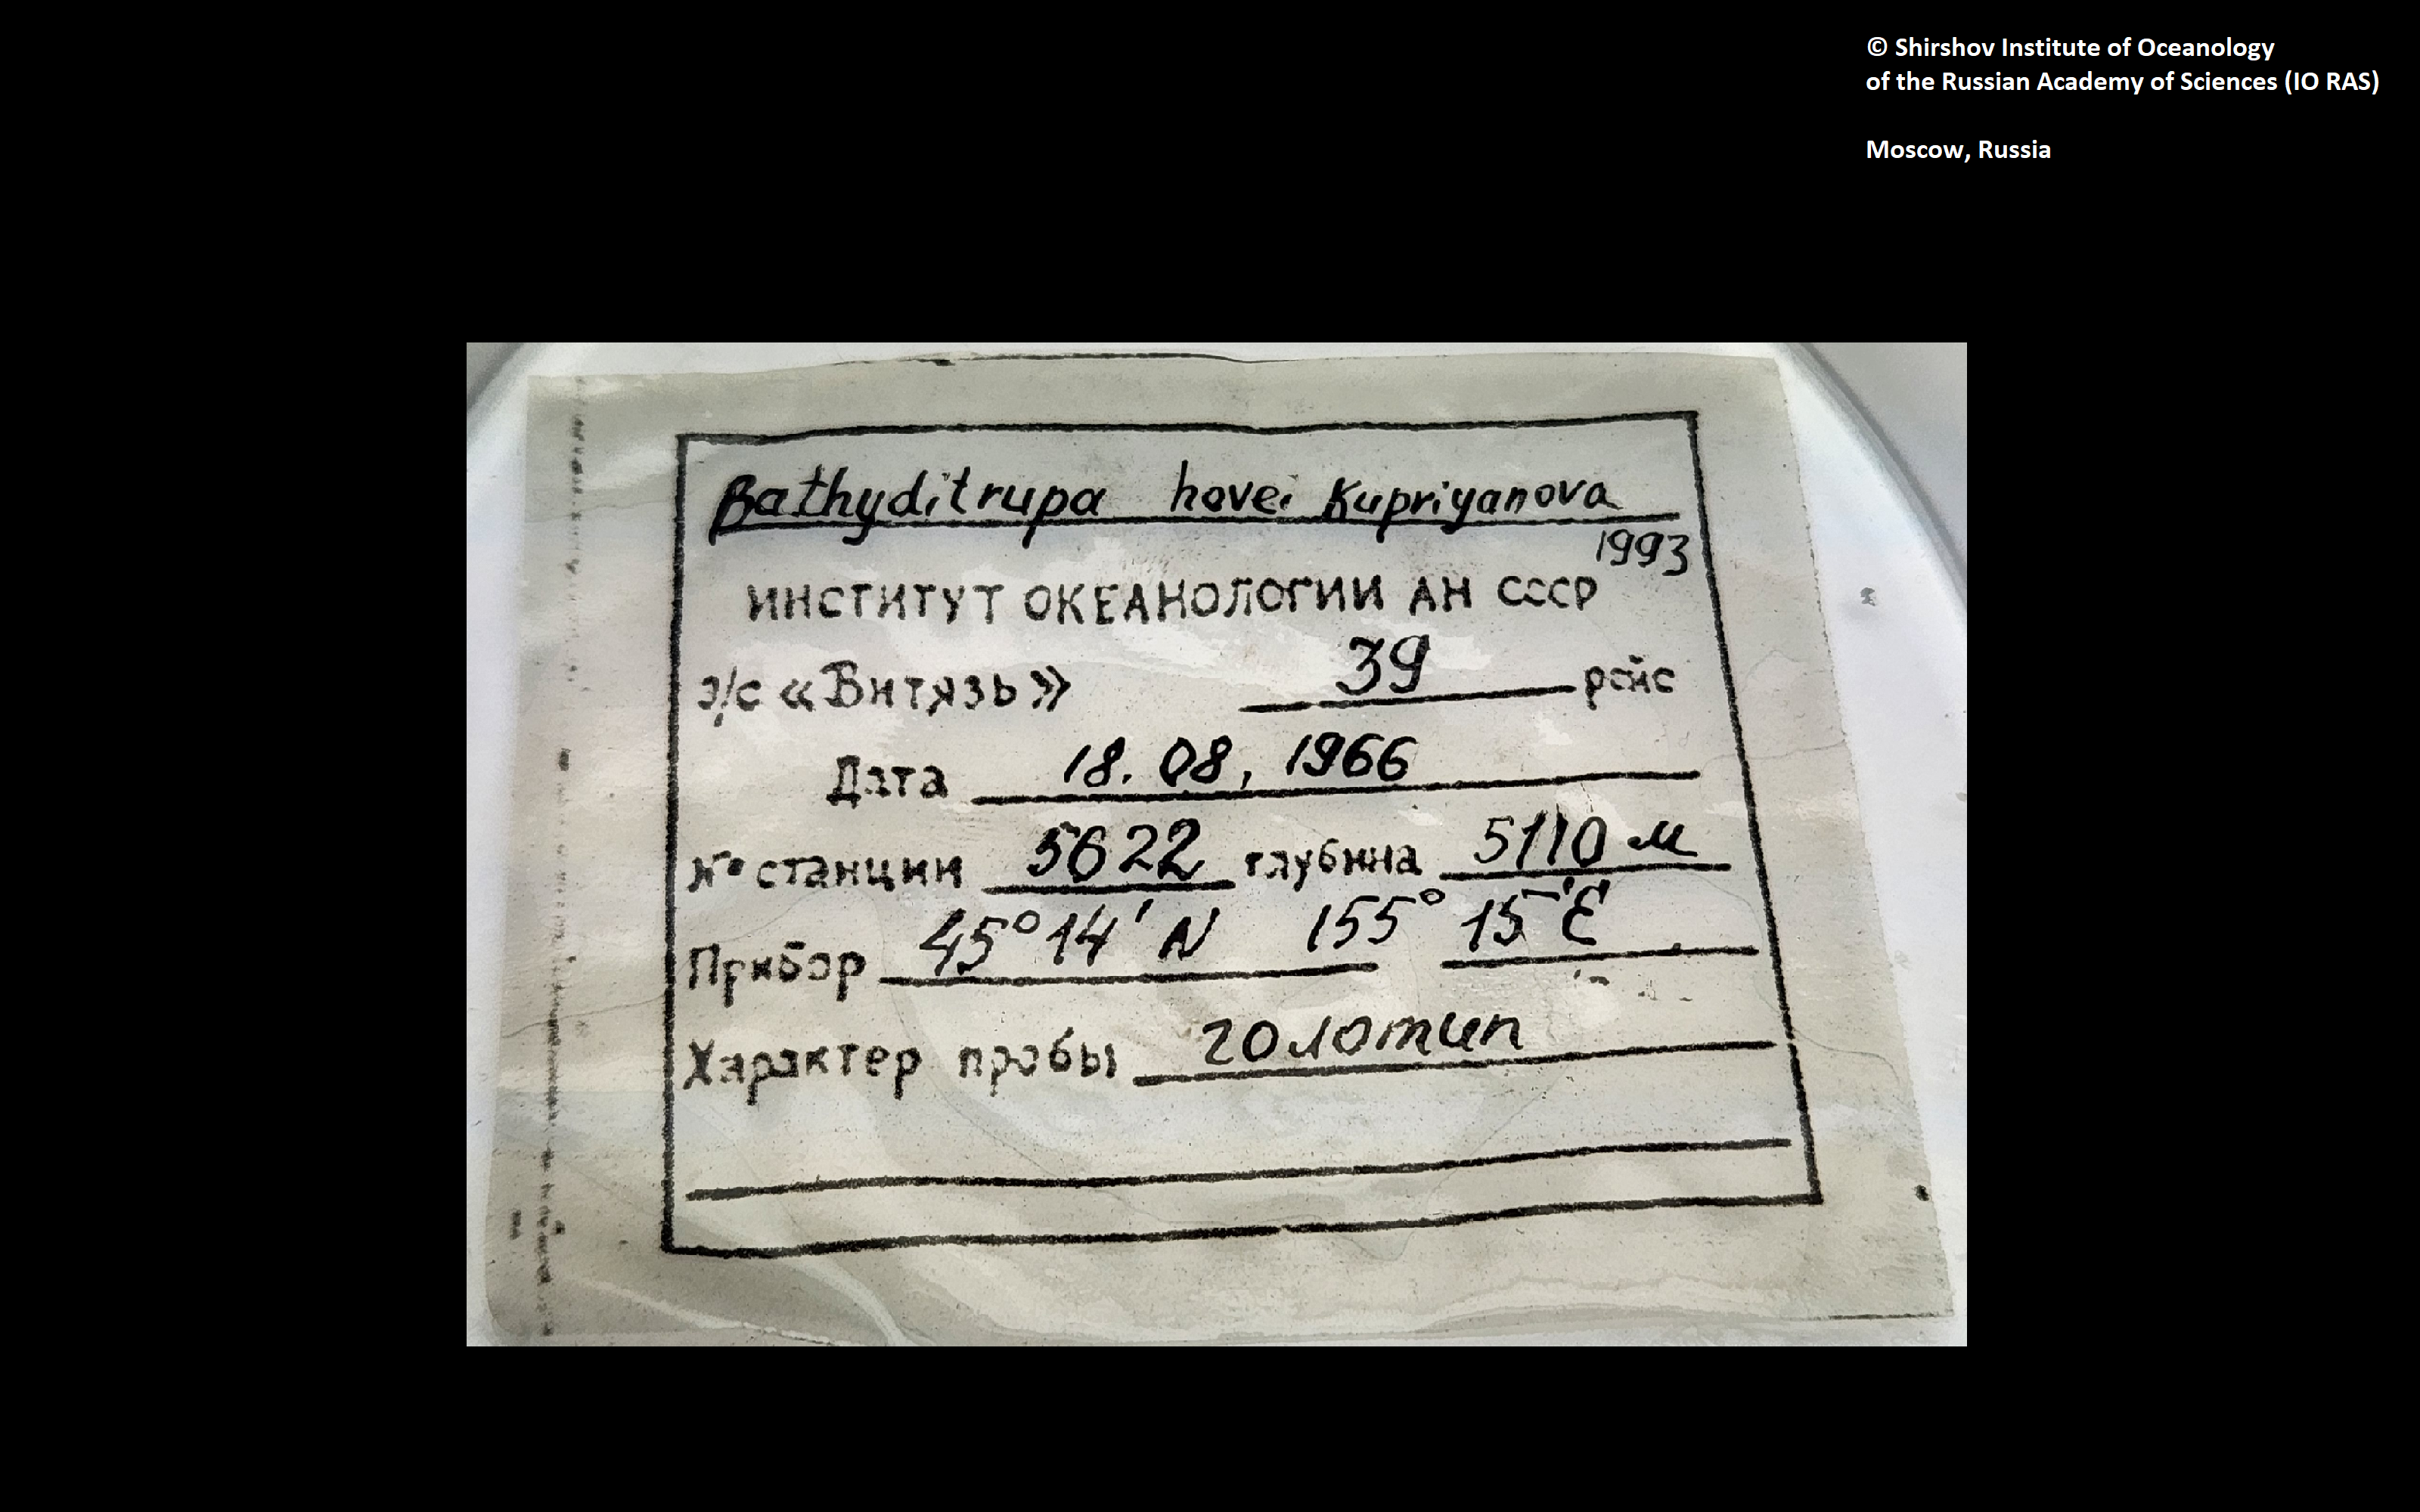 © Shirshov Institute of Oceanology
of the Russian Academy of Sciences (IO RAS)
Moscow, Russia
Bathyditrupa hovei Kupriyanova
1993
ИНСТИТУТ ОКЕАНОЛОГИИ АН СССР
э/с «Витязь» 39 рейс
Дата 18. 08, 1966
№ станции 5622 глубина 5110 м
Прибор 45° 14' N 155° 15' E
Характер пробы голотип